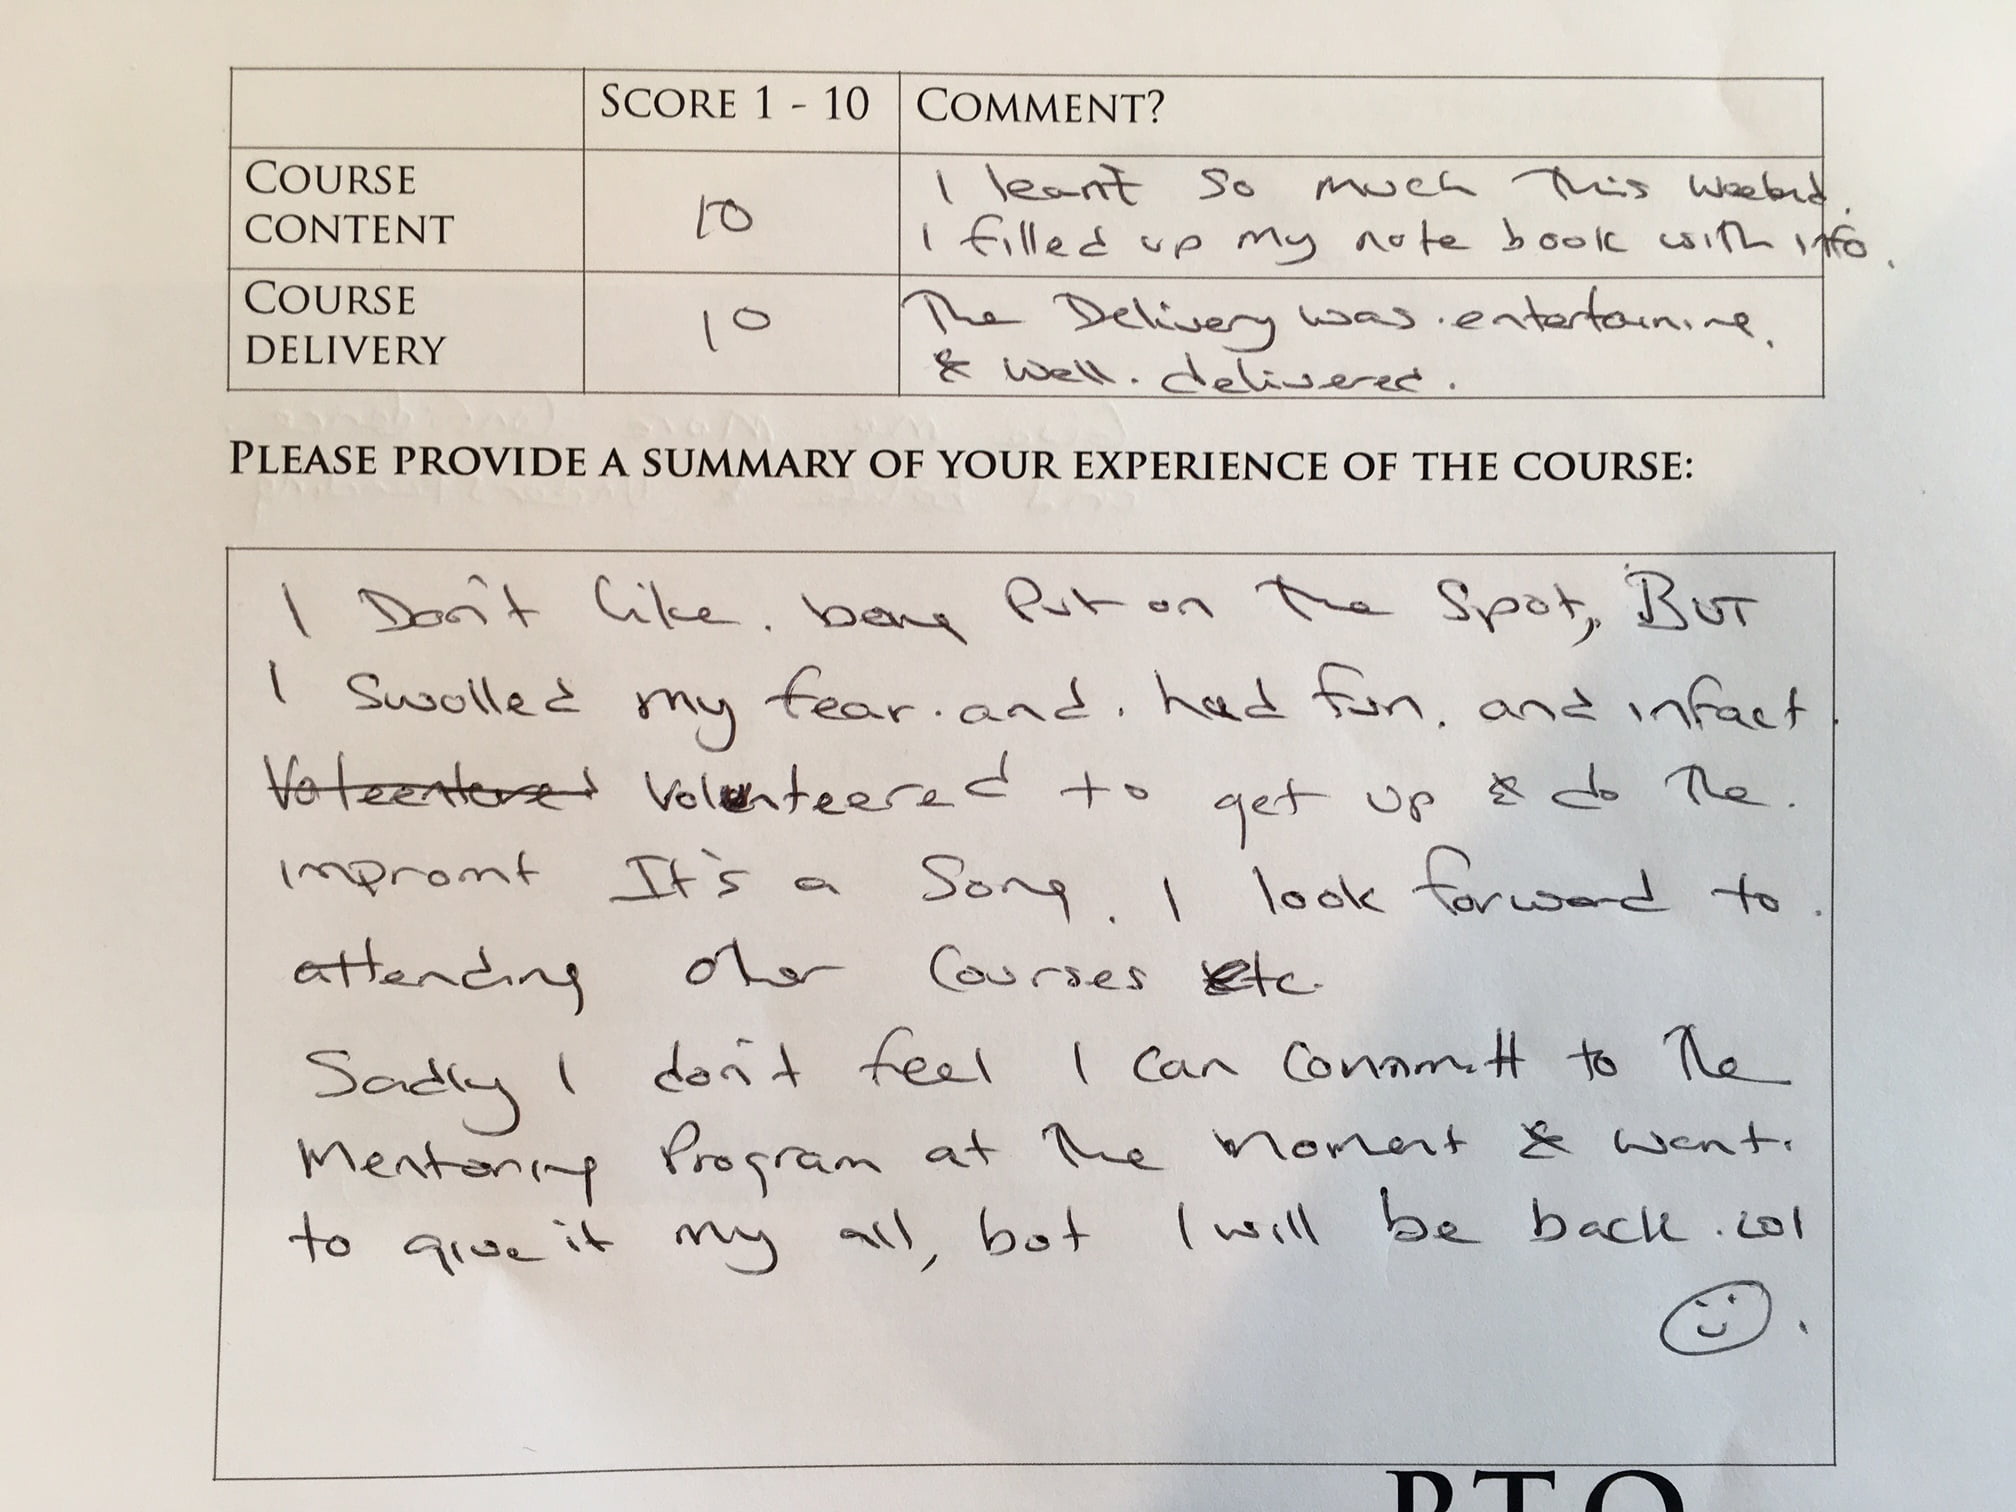 SCORE 1 - 10 COMMENT?
COURSE
CONTENT
10
I learnt so much This
I filled up my note book with info.
COURSE
DELIVERY
10
The Delivery was entertaining.
& well. delivered.
PLEASE PROVIDE A SUMMARY OF YOUR EXPERIENCE OF THE COURSE:
I Don't like. being Put on The Spot, BUT
I Swolled my fear. and. had fun. and infact.
Volunteered to get up & do The.
impromt It's a Song. I look forward to.
attending other Courses etc.
Sadly I don't feel I can Committ to The
Mentoring Program at The moment & want.
to give it my all, but I will be back. lol
PTO